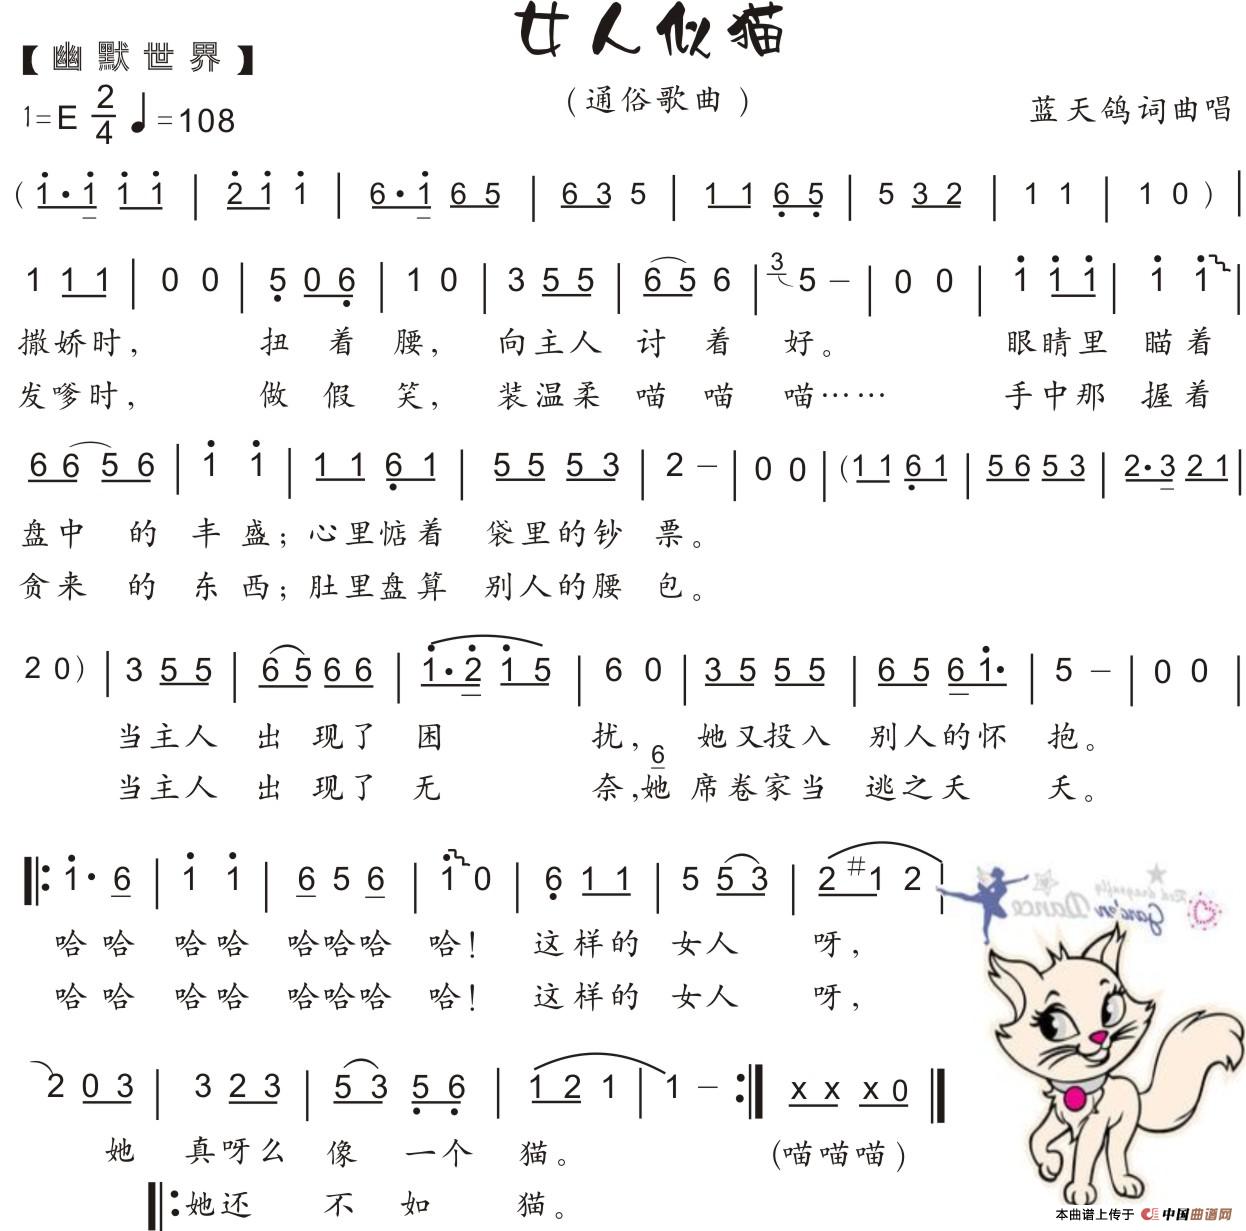 女人似猫
【幽默世界】
(通俗歌曲)
1=E 2/4 ♩=108
蓝天鸽词曲唱
(1̇·1̇ 1̇ 1̇ | 2̇ 1̇ 1̇ | 6·1̇ 6 5 | 6 3 5 | 1 1 6̣ 5̣ | 5 3 2 | 1 1 | 1 0 ) |
1 1 1 | 0 0 | 5̣ 0 6̣ | 1 0 | 3 5 5 | 6 5 6 | 3 5 – | 0 0 | 1̇ 1̇ 1̇ | 1̇ 1̇ |
撒娇时, 扭着腰, 向主人讨着好。 眼睛里瞄着
发嗲时, 做假笑, 装温柔喵喵喵…… 手中那握着
6 6 5 6 | 1̇ 1̇ | 1 1 6̣ 1 | 5 5 5 3 | 2 – | 0 0 | (1 1 6̣ 1 | 5 6 5 3 | 2·3 2 1 |
盘中的丰盛; 心里惦着袋里的钞票。
贪来的东西; 肚里盘算别人的腰包。
2 0) | 3 5 5 | 6 5 6 6 | 1̇·2̇ 1̇ 5 | 6 0 | 3 5 5 5 | 6 5 6 1̇· | 5 – | 0 0 |
当主人出现了困扰, 她又投入别人的怀抱。
6
当主人出现了无奈,她席卷家当逃之夭夭。
‖: 1̇· 6 | 1̇ 1̇ | 6 5 6 | 1̇ 0 | 6̣ 1 1 | 5 5 3 | 2 #1 2 |
哈哈哈哈哈哈哈哈! 这样的女人呀,
哈哈哈哈哈哈哈哈! 这样的女人呀,
2 0 3 | 3 2 3 | 5 3 5̣ 6̣ | 1 2 1 | 1 – :‖ x x x 0 ‖
她真呀么像一个猫。 (喵喵喵)
‖: 她还不如猫。
Red dragonfly
Garden Dance
本曲谱上传于 中国曲谱网